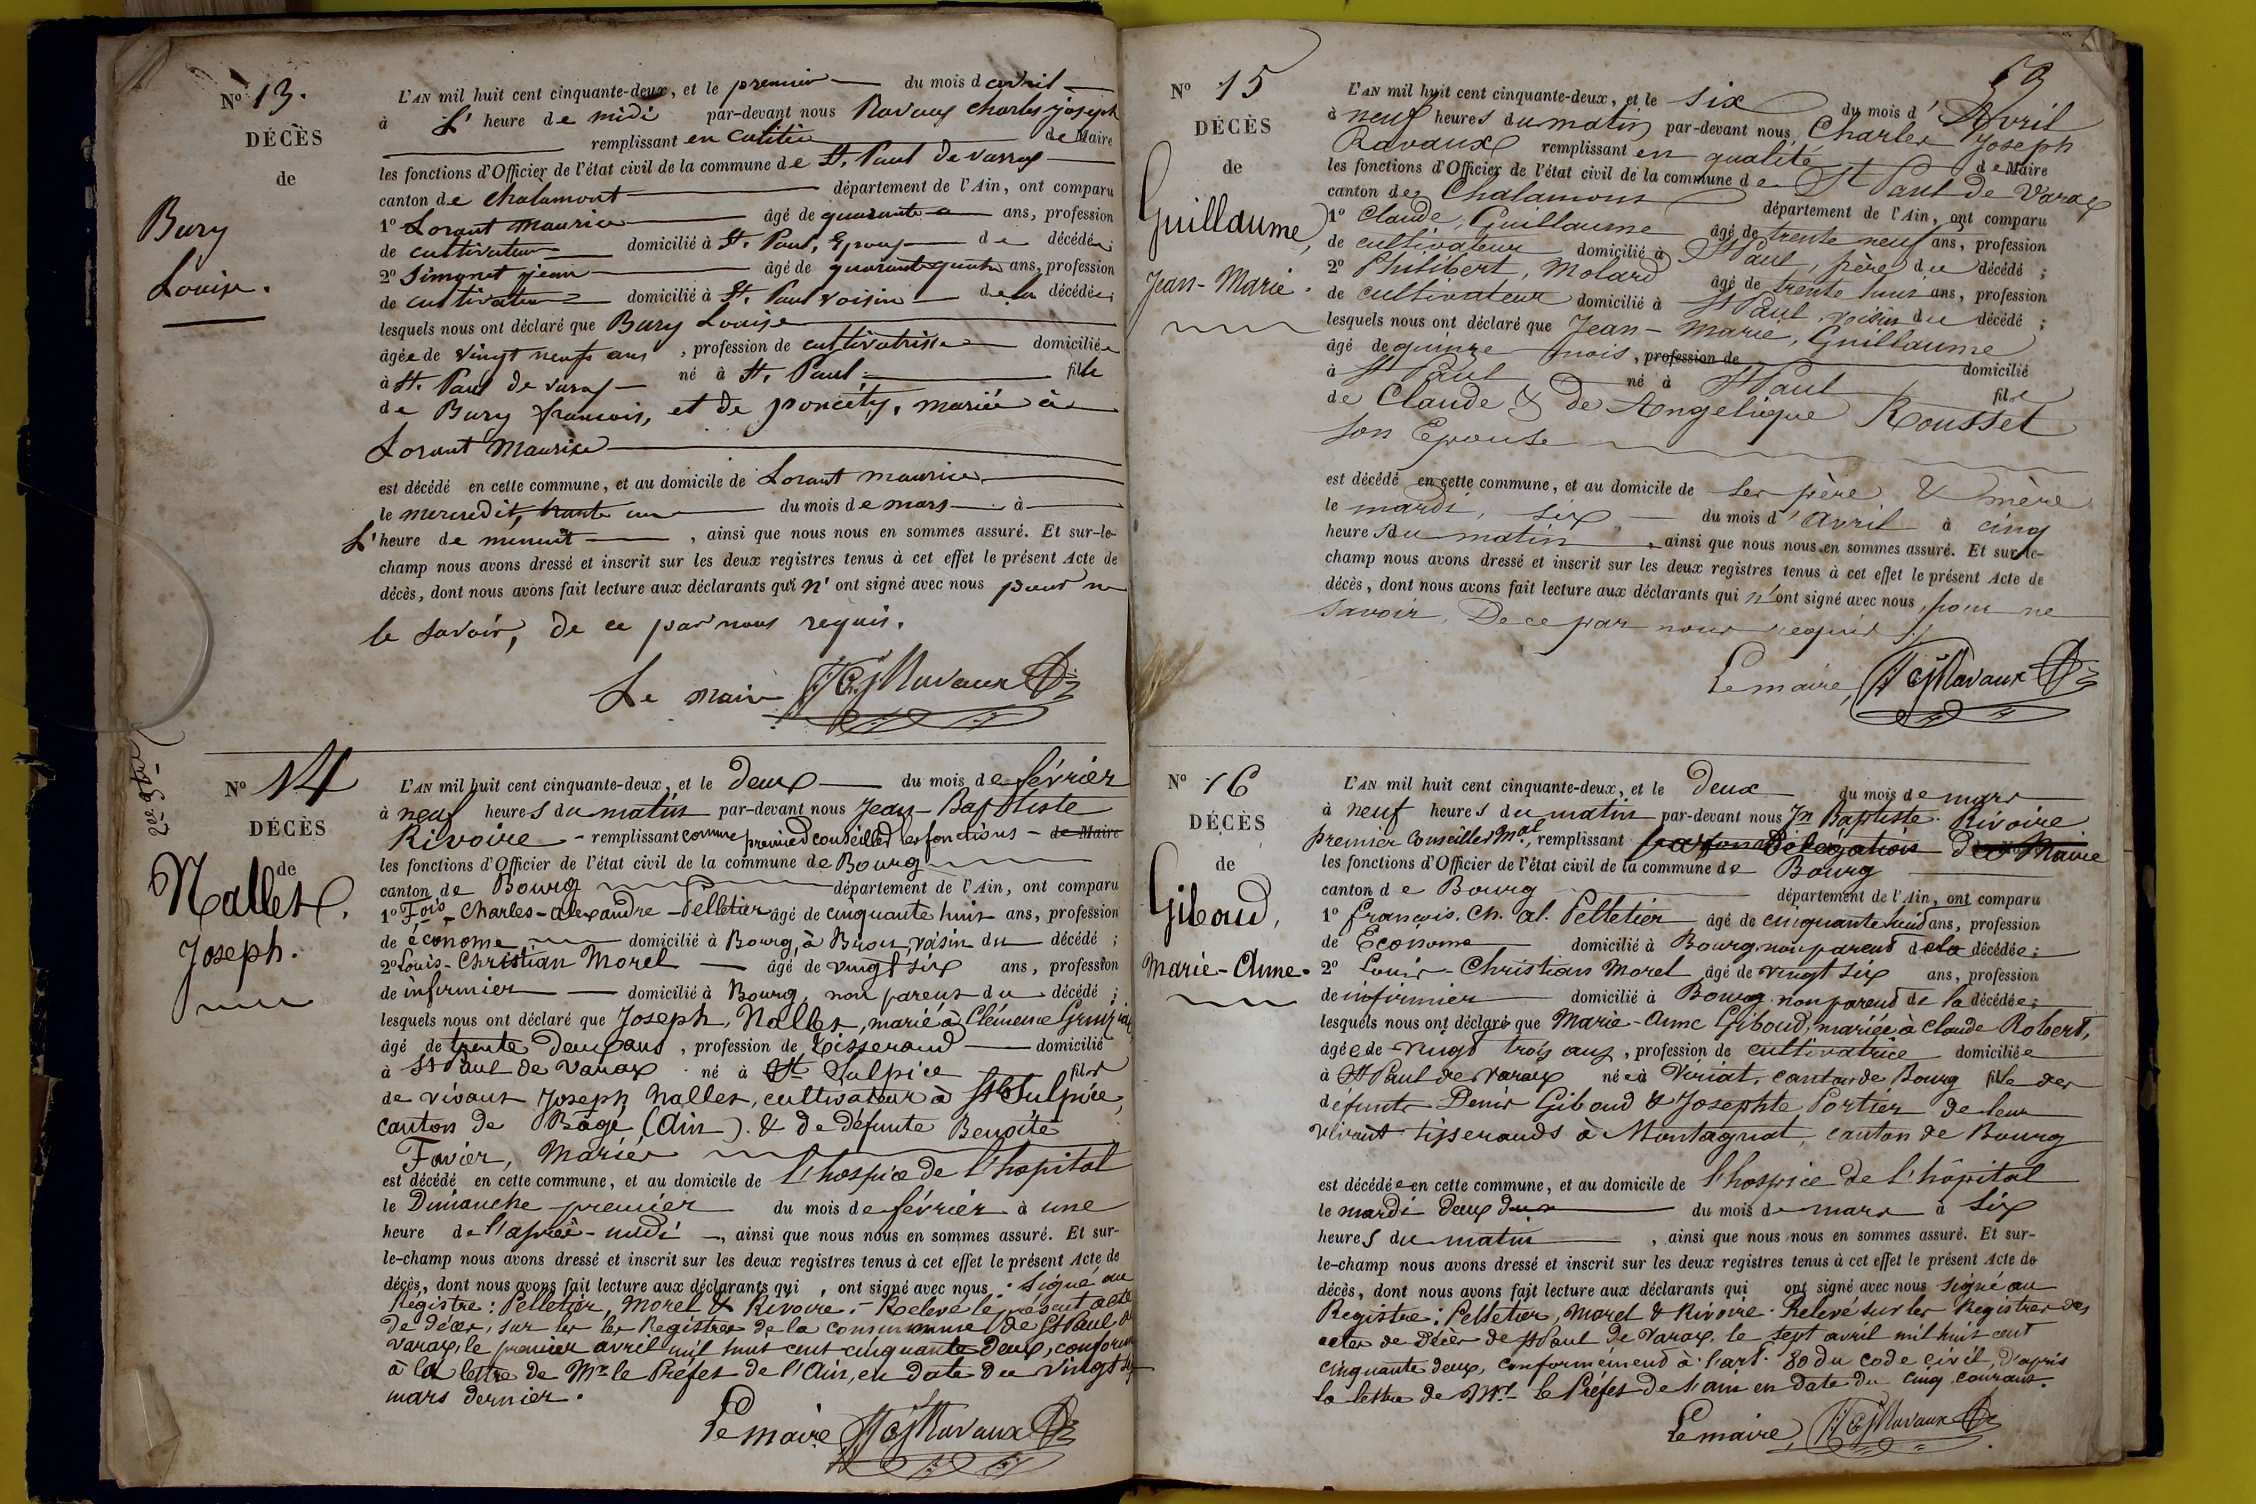 N° 13.
DÉCÈS
de
Bury
Louise.
L'AN mil huit cent cinquante-deux, et le premier du mois d avril
à L' heure de midi par-devant nous Ravaux Charles joseph
remplissant en calitée de Maire
les fonctions d'Officier de l'état civil de la commune de St. Paul de varax
canton de chalamont département de l'Ain, ont comparu
1° Lorant maurice âgé de quarante ans, profession
de cultivateur domicilié à St. Paul, Epoux de décédée;
2° Simonet jean âgé de quarante quatre ans, profession
de cultivateur domicilié à St. Paul voisin de la décédée;
lesquels nous ont déclaré que Bury Louise
âgée de vingt neufs ans, profession de cultivatrisse domiciliée
à St. Paul de varax né à St. Paul fille
de Bury francois, et de poncéty, mariée à
Lorant Maurice
est décédé en cette commune, et au domicile de Lorant maurice
le mercredit, trante un du mois de mars à
L'heure de menuit, ainsi que nous nous en sommes assuré. Et sur-le-
champ nous avons dressé et inscrit sur les deux registres tenus à cet effet le présent Acte de
décès, dont nous avons fait lecture aux déclarants qui n' ont signé avec nous pour ne
le savoir, de ce par nous requis.
Le maire CjRavaux
N° 14
DÉCÈS
de
Nallet,
Joseph.
L'AN mil huit cent cinquante-deux, et le deux du mois de février
à neuf heures du matin par-devant nous Jean-Baptiste
Rivoire - remplissant comme premier conseiller les fonctions - de Maire
les fonctions d'Officier de l'état civil de la commune de Bourg
canton de Bourg département de l'Ain, ont comparu
1° Fois - Charles-alexandre - Pelletier âgé de cinquante huit ans, profession
de économe domicilié à Bourg, à Brou, voisin du décédé;
2° Louis-Christian Morel âgé de vingt six ans, profession
de infirmier domicilié à Bourg, non parent du décédé;
lesquels nous ont déclaré que Joseph, Nallet, marié à Clémence
âgé de trente deux ans, profession de Tisserand domicilié
à St Paul de Varax né à St Sulpice fils
de vivant Joseph Nallet, cultivateur à St Sulpice,
canton de Bâgé (Ain). & de défunte Benoîte
Favier, Mariés
est décédé en cette commune, et au domicile de l'hospice de l'hopital
le Dimanche premier du mois de février à une
heure de l'après-midi, ainsi que nous nous en sommes assuré. Et sur-
le-champ nous avons dressé et inscrit sur les deux registres tenus à cet effet le présent Acte de
décès, dont nous avons fait lecture aux déclarants qui, ont signé avec nous. Signé au
Registre: Pelletier, Morel & Rivoire. - Relevé le présent acte
de décès, sur les les Registres de la commune de St Paul de
Varax, le premier avril mil huit cent cinquante deux, conformé
à la lettre de Mr le Préfet de l'Ain, en date du vingt
mars dernier.
Le maire CjRavaux
N° 15
DÉCÈS
de
Guillaume,
Jean-Marie.
59
L'AN mil huit cent cinquante-deux, et le six du mois d' Avril
à neuf heures du matin par-devant nous Charles Joseph
Ravaux remplissant en qualité de Maire
les fonctions d'Officier de l'état civil de la commune de St Paul de Varax
canton de Chalamont département de l'Ain, ont comparu
1° Claude, Guillaume âgé de trente neuf ans, profession
de cultivateur domicilié à St Paul, père du décédé;
2° Philibert, Molard âgé de trente huit ans, profession
de cultivateur domicilié à St Paul, voisin du décédé;
lesquels nous ont déclaré que Jean-Marie, Guillaume
âgé de quinze mois, profession de domicilié
à St Paul né à St Paul fils
de Claude & de Angelique Rousset
son Epouse
est décédé en cette commune, et au domicile de ses père & mère
le mardi, six du mois d' avril à cinq
heures du matin, ainsi que nous nous en sommes assuré. Et sur-le-
champ nous avons dressé et inscrit sur les deux registres tenus à cet effet le présent Acte de
décès, dont nous avons fait lecture aux déclarants qui n'ont signé avec nous, pour ne
savoir, De ce par nous requis.
Le maire, CjRavaux
N° 16
DÉCÈS
de
Giboud,
Marie-Anne.
L'AN mil huit cent cinquante-deux, et le deux du mois de mars
à neuf heures du matin par-devant nous Jn Baptiste Rivoire
premier conseiller Mal, remplissant par Délégation de Maire
les fonctions d'Officier de l'état civil de la commune de Bourg
canton de Bourg département de l'Ain, ont comparu
1° francois. Ch. al. Pelletier âgé de cinquante huit ans, profession
de Econome domicilié à Bourg, non parent de la décédée;
2° Louis-Christian Morel âgé de vingt six ans, profession
de infirmier domicilié à Bourg non parent de la décédée;
lesquels nous ont déclaré que Marie-Anne Giboud, mariée à claude Robert,
âgée de vingt trois ans, profession de cultivatrice domiciliée
à St Paul de Varax née à Viriat, canton de Bourg fille des
défunts Denis Giboud & Josephte Portier de leur
vivant tisserands à Montagnat, canton de Bourg
est décédée en cette commune, et au domicile de l'hospice de l'hôpital
le mardi deux du mois de mars à six
heures du matin, ainsi que nous nous en sommes assuré. Et sur-
le-champ nous avons dressé et inscrit sur les deux registres tenus à cet effet le présent Acte de
décès, dont nous avons fait lecture aux déclarants qui ont signé avec nous signé au
Registre: Pelletier, Morel & Rivoire. Relevé sur les Registres des
actes de Décès de St Paul de Varax, le sept avril mil huit cent
cinquante deux, conformément à l'art. 80 du code civil, d'après
la lettre de Mr le Préfet de l'ain en date du cinq courant.
Le maire, CjRavaux